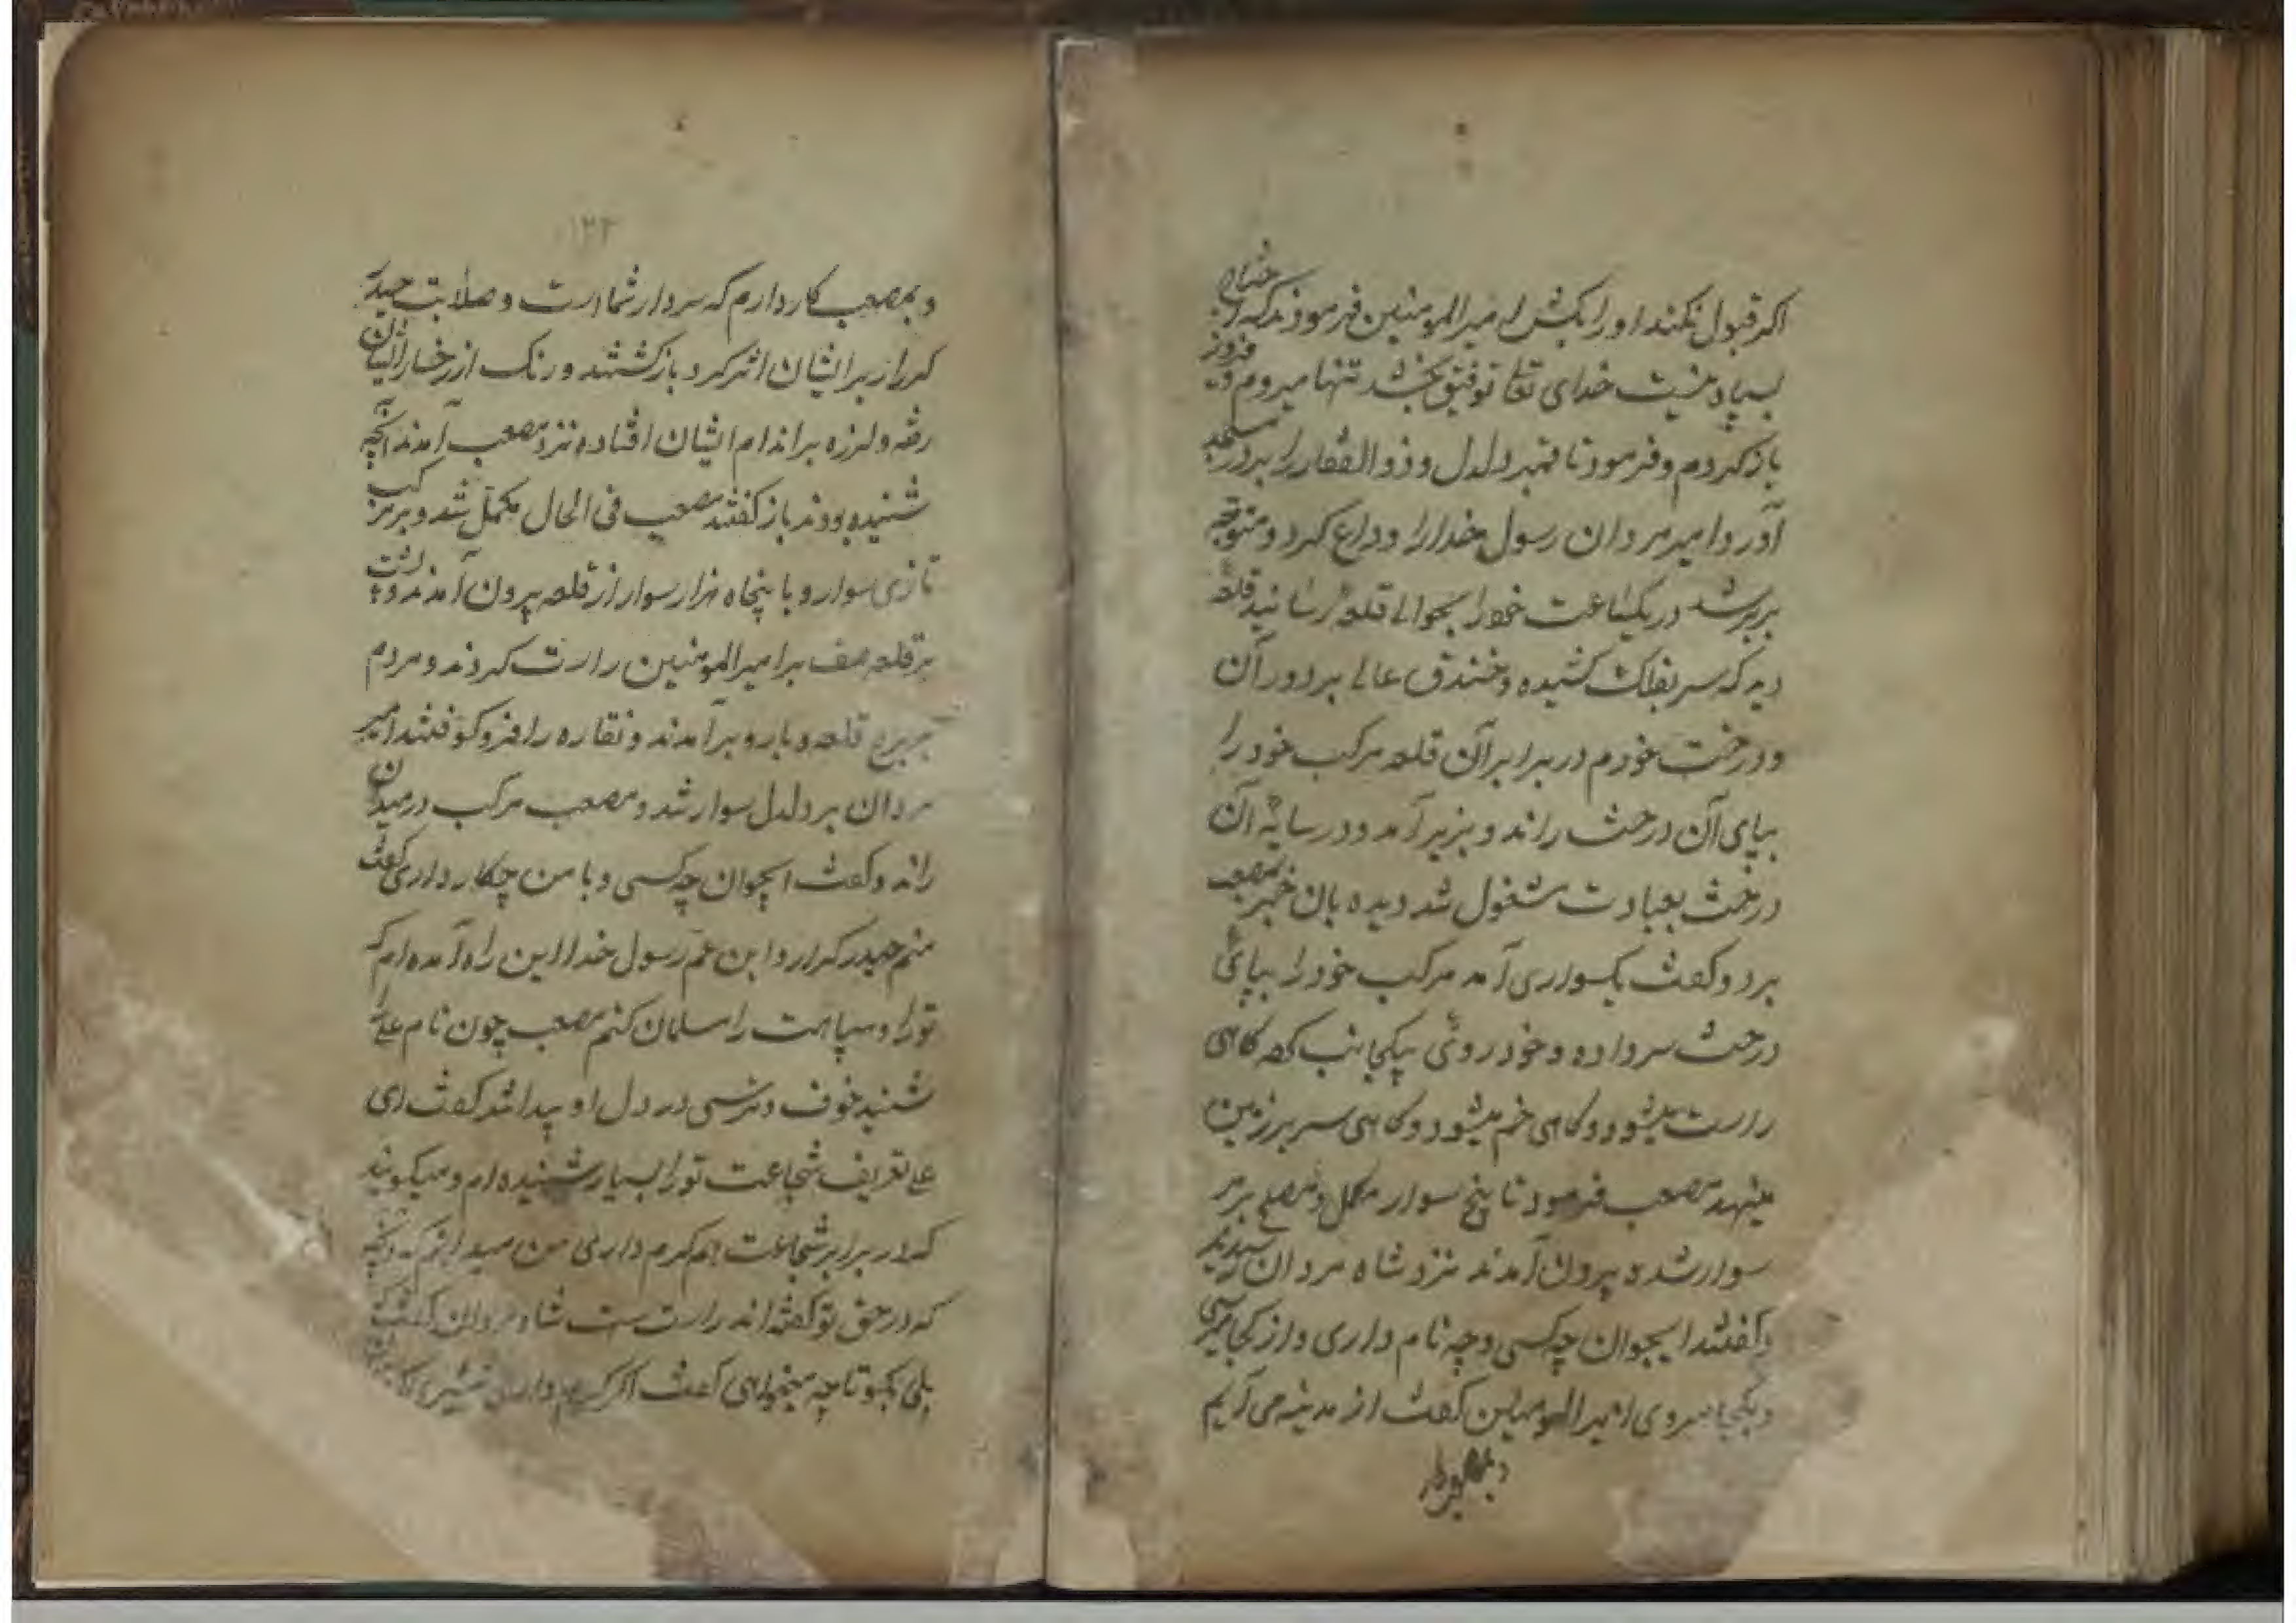 اکر قبول نکند او را بکش امیر المومنین فرمودند که
بسپاد نیست خدای تعالی توفیق بخشد تنها میروم و
باز کردم و فرمود تا قنبر دلدل و ذوالفقار را بر در مسجد
آورد امیر مردان رسول خدا را وداع کرد و متوجه
بربر شد در یکساعت خود را بحوالی قلعه رسانید قلعهٔ
دید که سر بفلک کشیده و خندق عالی بر دور آن
و درخت خودم در برابر آن قلعه مرکب خود را
بپای آن درخت راند و بزیر آمد و در سایهٔ آن
درخت بعبادت مشغول شد دیده بان خبر بمصعب
برد و کفت یکسواری آمد مرکب خود را بپائی
درخت سر داده و خود روئی بیکجانب کعبه کاهی
راست میشود و کاهی خم میشود و کاهی سر بر زمین
مینهد مصعب فرمود تا پنج سوار مکمل و مصلح بر مر
سوار شده بیرون آمدند نزد شاه مردان رسیدند
و کفتند ایجوان چه کسی و چه نام داری و از کجا میرسی
و بکجا میروی امیر المومنین کفت از مدینه می آیم
و بمصعب کار
۱۲۲
و بمصعب کار دارم که سردار شما است و صلابت حیدر
کرار بر ایشان اثر کرد باز کشتند و رنک از رخسار ایشان
رفته و لرزه بر اندام ایشان افتاده نزد مصعب آمدند آنچه
شنیده بودند باز کفتند مصعب فی الحال مکمل شد و بر مرکب
تازی سوار و با پنجاه هزار سوار از قلعه بیرون آمدند و پشت
بر قلعه صف بر امیر المومنین راست کردند و مردم
بربر قلعه و بارو بر آمدند و نقاره را فرو کوفتند امیر
مردان بر دلدل سوار شد و مصعب مرکب در میدان
راند و کفت ایجوان چه کسی و با من چکار داری کفت
منم حیدر کرار و ابن عم رسول خدا این راه آمده ام که
تو را و سپاهت را مسلمان کنم مصعب چون نام علی را
شنید خوف و ترسی در دل او پیدا شد کفت ای
علی تعریف شجاعت تو را بسیار شنیده ام و میکویند
که در برابر شجاعت هم کرم داری من میدانم که آنچه
که در حق تو کفته اند راست ست شاه مردان کفت
بلی بکو تا چه میخواهی کفت اکر کرم داری شمشیر